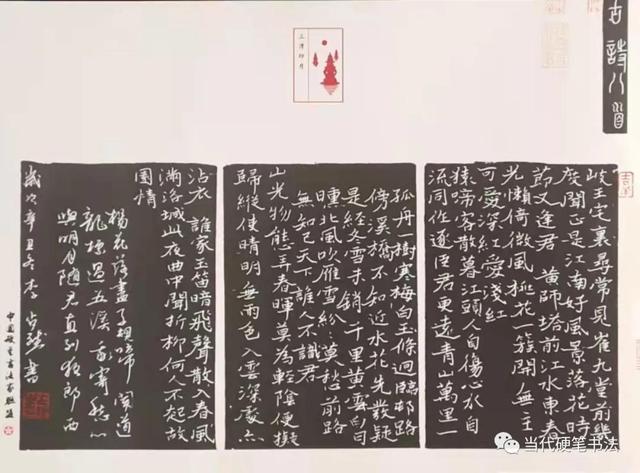 古詩八首
三潭印月
岐王宅裏尋常見崔九堂前幾
度聞正是江南好風景落花時
節又逢君 黃師塔前江水東春
光懶倚微風桃花一簇開無主
可愛深紅愛淺紅
猿啼客散暮江頭人自傷心水自
流同作逐臣君更遠青山萬里一
孤舟一樹寒梅白玉條迥臨邨路
傍溪橋不知近水花先發疑
是經冬雪未銷千里黃雲白日
曛北風吹雁雪紛〻莫愁前路
無知己天下誰人不識君
山光物態弄春暉莫為輕陰便擬
歸縱使晴明無雨色入雲深處亦
沾衣 誰家玉笛暗飛聲散入春風
滿洛城此夜曲中聞折柳何人不起故
園情
楊花落盡子規啼聞道
龍標過五溪我寄愁心
與明月隨君直到夜郎西
歲次辛丑冬李書
中國硬筆書法家協會
当代硬笔书法